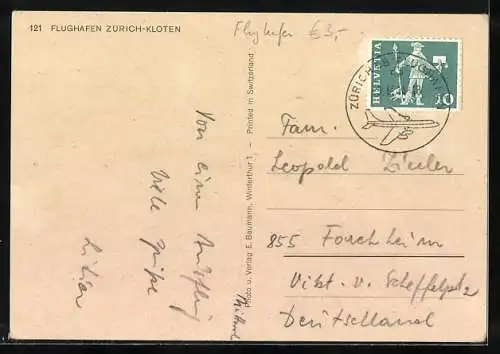 121 FLUGHAFEN ZÜRICH-KLOTEN
Flughafen €3,-
HELVETIA
10
ZÜRICH
Photo u. Verlag E. Baumann, Winterthur 1 - Printed in Switzerland
Von einem Ausflug
viele Grüße
Fam.
Leopold
855 Forchheim
Vikt. v. Scheffelpl 2
Deutschland